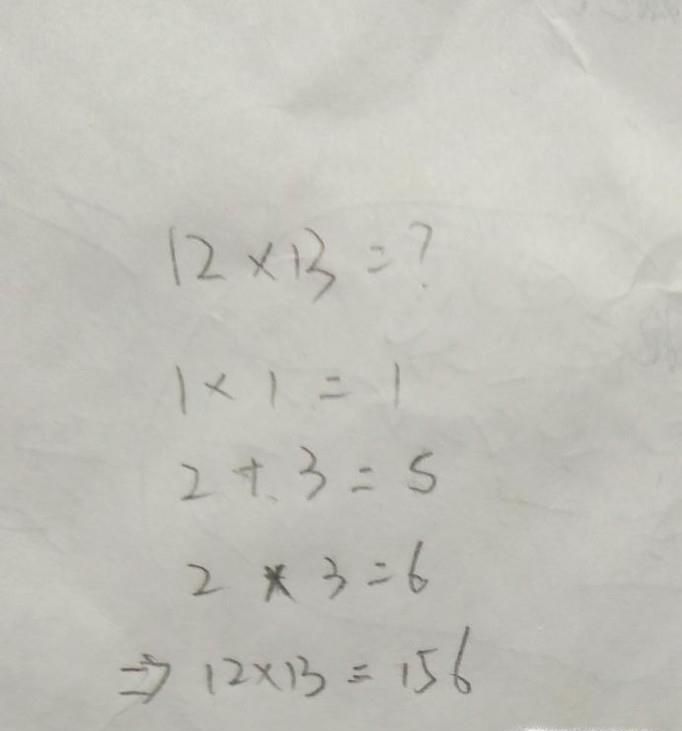 12×13=?
1×1=1
2+3=5
2×3=6
⇒12×13=156